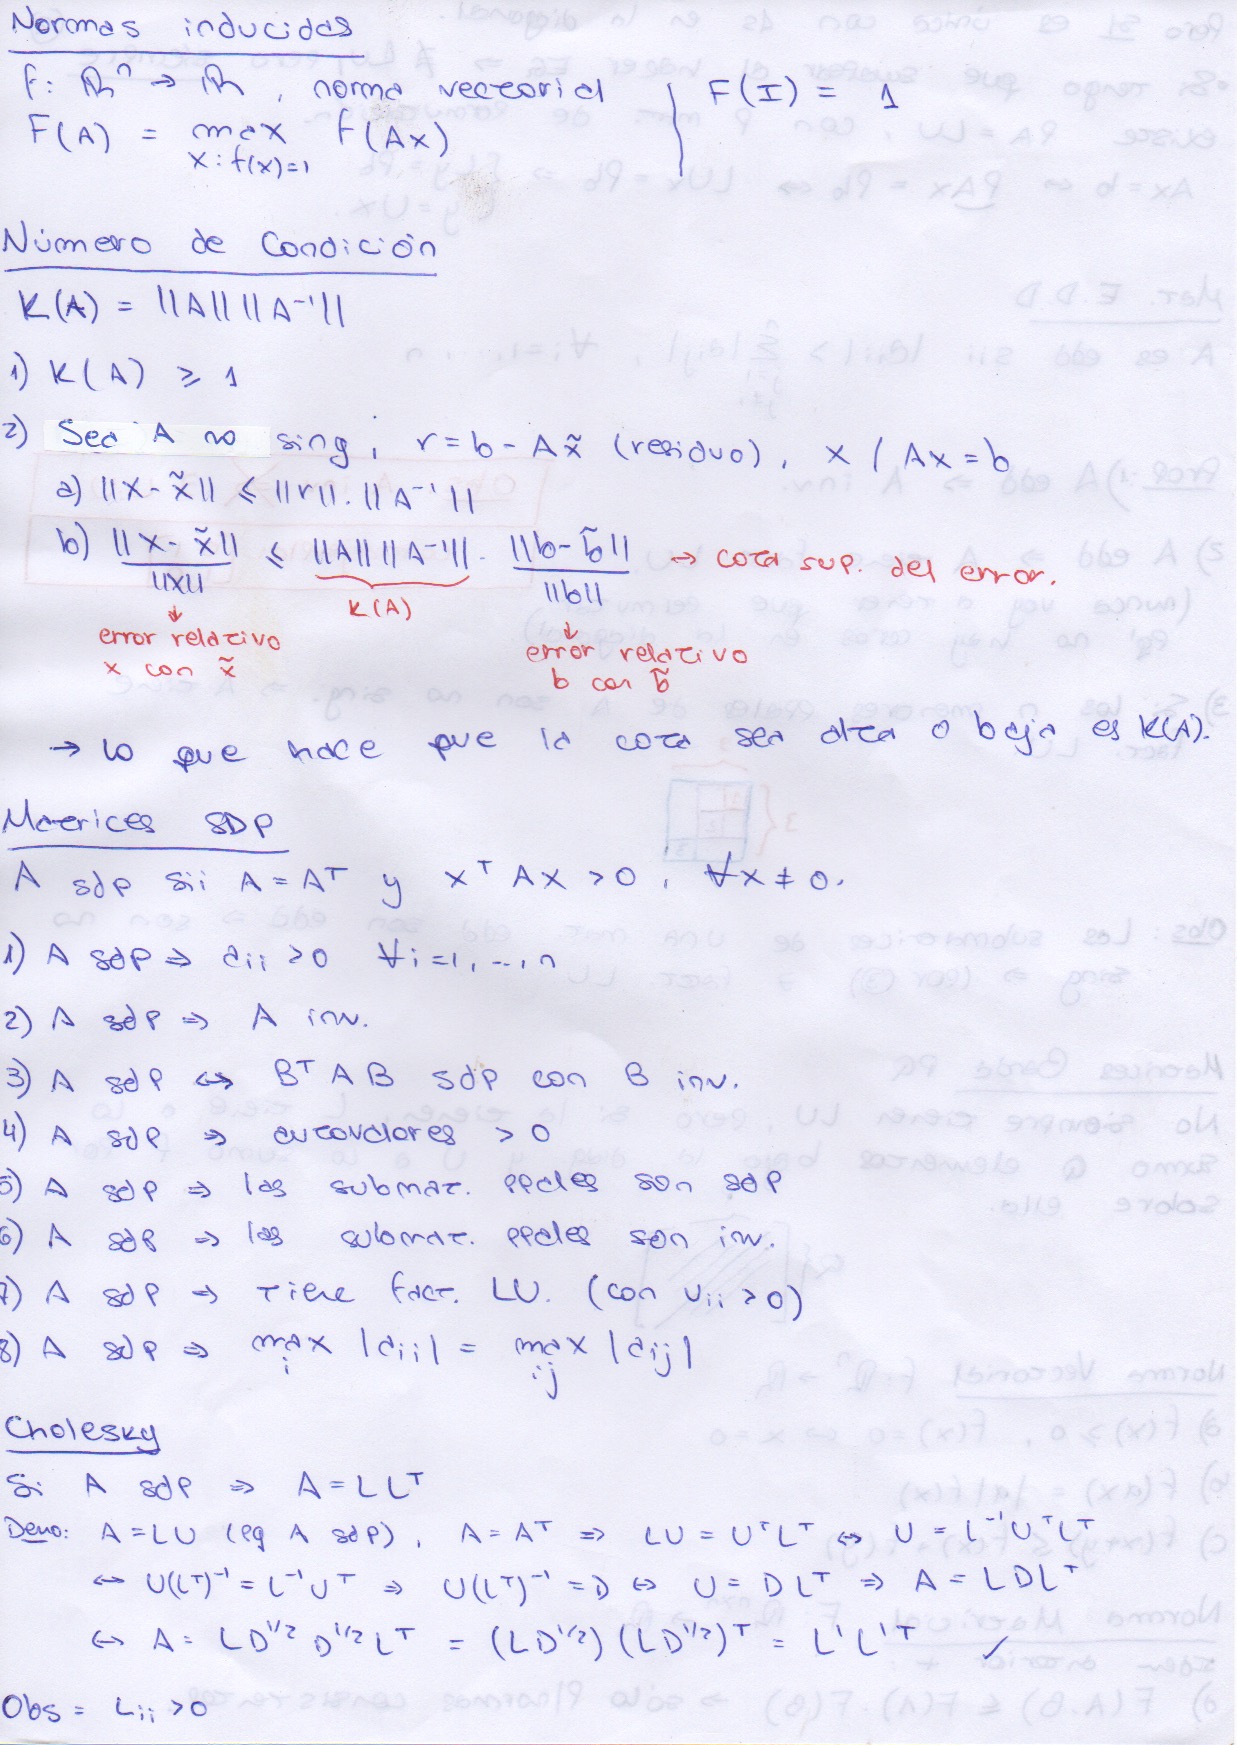 Normas inducidas
f: ℝⁿ → ℝ, norma vectorial | F(I) = 1
F(A) = max f(Ax)
x : f(x)=1
Número de Condición
K(A) = ||A|| ||A⁻¹||
1) K(A) ≥ 1
2) Sea A no sing, r = b - Ax̃ (residuo), x / Ax = b
a) ||x - x̃|| ≤ ||r|| . ||A⁻¹||
b) ||x - x̃|| / ||x|| ≤ ||A|| ||A⁻¹|| . ||b - b̃|| / ||b|| → cota sup. del error.
K(A)
error relativo x con x̃
error relativo b con b̃
→ lo que hace que la cota sea alta o baja es K(A).
Matrices SDP
A sdp sii A = Aᵀ y xᵀAx > 0, ∀x ≠ 0.
1) A sdp ⇒ aii > 0 ∀i=1,...,n
2) A sdp ⇒ A inv.
3) A sdp ↔ BᵀAB sdp con B inv.
4) A sdp ⇒ autovalores > 0
5) A sdp ⇒ las submat. ppales son sdp
6) A sdp ⇒ las submat. ppales son inv.
7) A sdp ⇒ tiene fact. LU. (con uii > 0)
8) A sdp ⇒ max |aii| = max |aij|
i ij
Cholesky
Si A sdp ⇒ A = LLᵀ
Demo: A = LU (pq A sdp), A = Aᵀ ⇒ LU = UᵀLᵀ ↔ U = L⁻¹UᵀLᵀ
↔ U(Lᵀ)⁻¹ = L⁻¹Uᵀ ⇒ U(Lᵀ)⁻¹ = D ↔ U = DLᵀ ⇒ A = LDLᵀ
↔ A = LD^1/2 D^1/2 Lᵀ = (LD^1/2)(LD^1/2)ᵀ = L'L'ᵀ ✓
Obs = Lii > 0